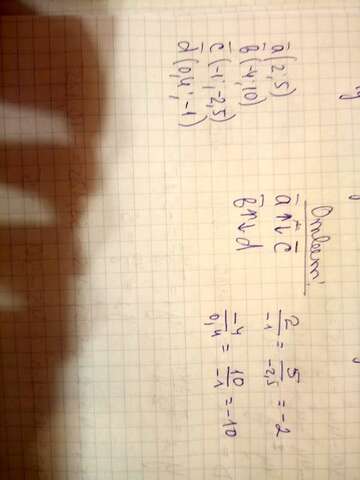 a̅ (2; 5)
b̅ (-4; 10)
c̅ (-1; -2,5)
d̅ (0,4; -1)
Ответ:
a̅ ↑↓ c̅
b̅ ↑↓ d
2/-1 = 5/-2,5 = -2
-4/0,4 = 10/-1 = -10